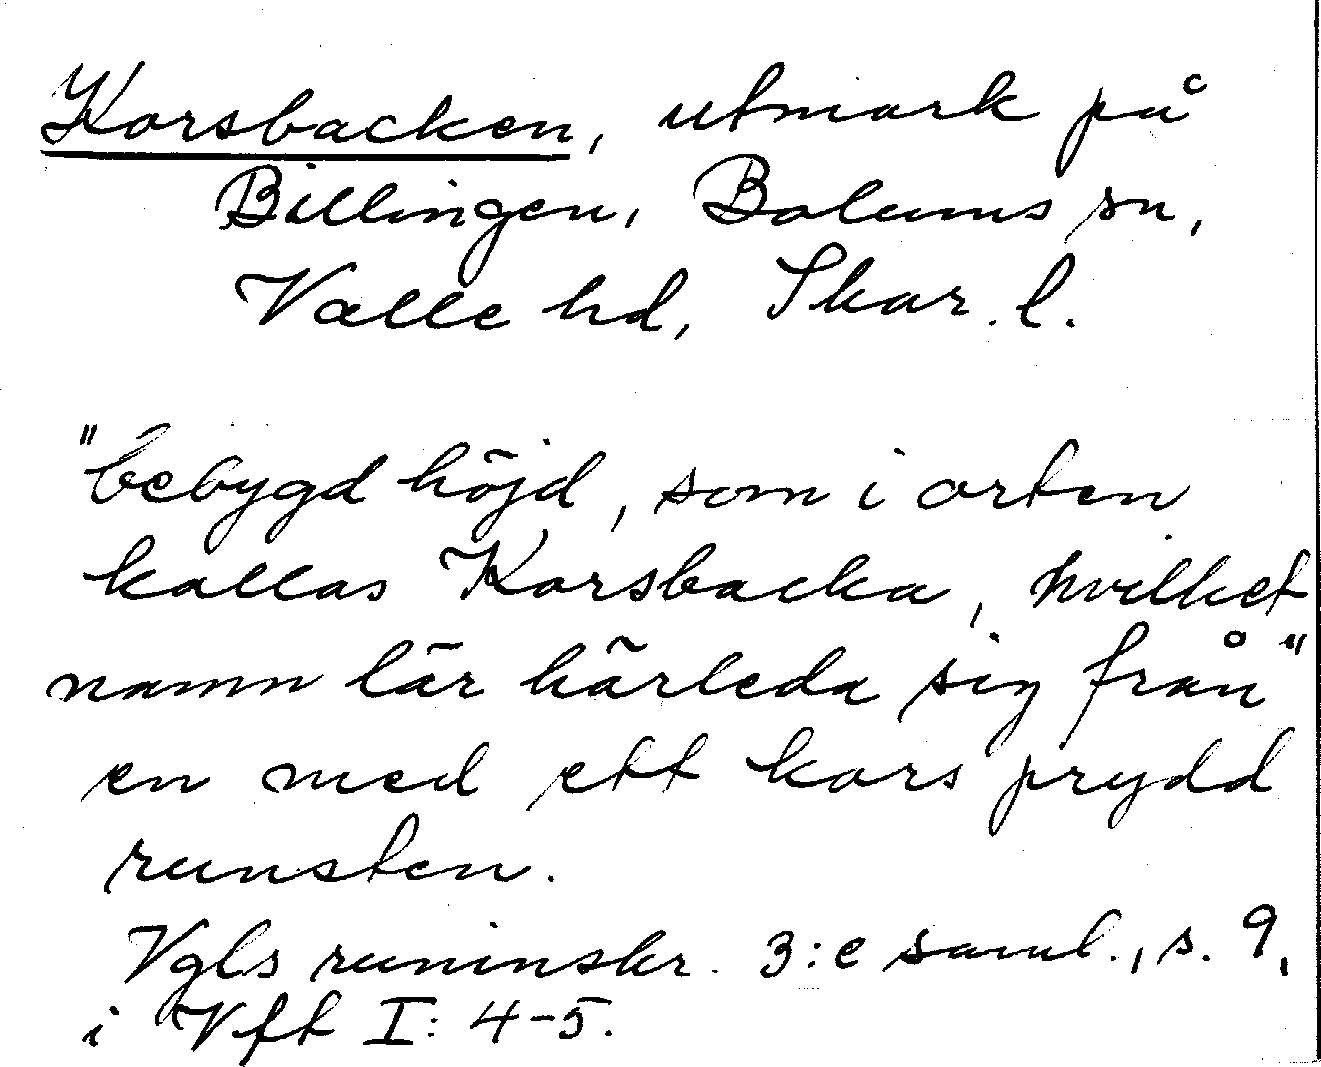 Korsbacken, utmark på
Billingen, Bolums sn,
Valle hd, Skar. l.
"bebygd höjd, som i orten
kallas Korsbacka, hvilket
namn lär härleda sig från"
en med ett kors prydd
runsten.
Vgls runinskr. 3:e saml., s. 9,
i Vft I: 4-5.